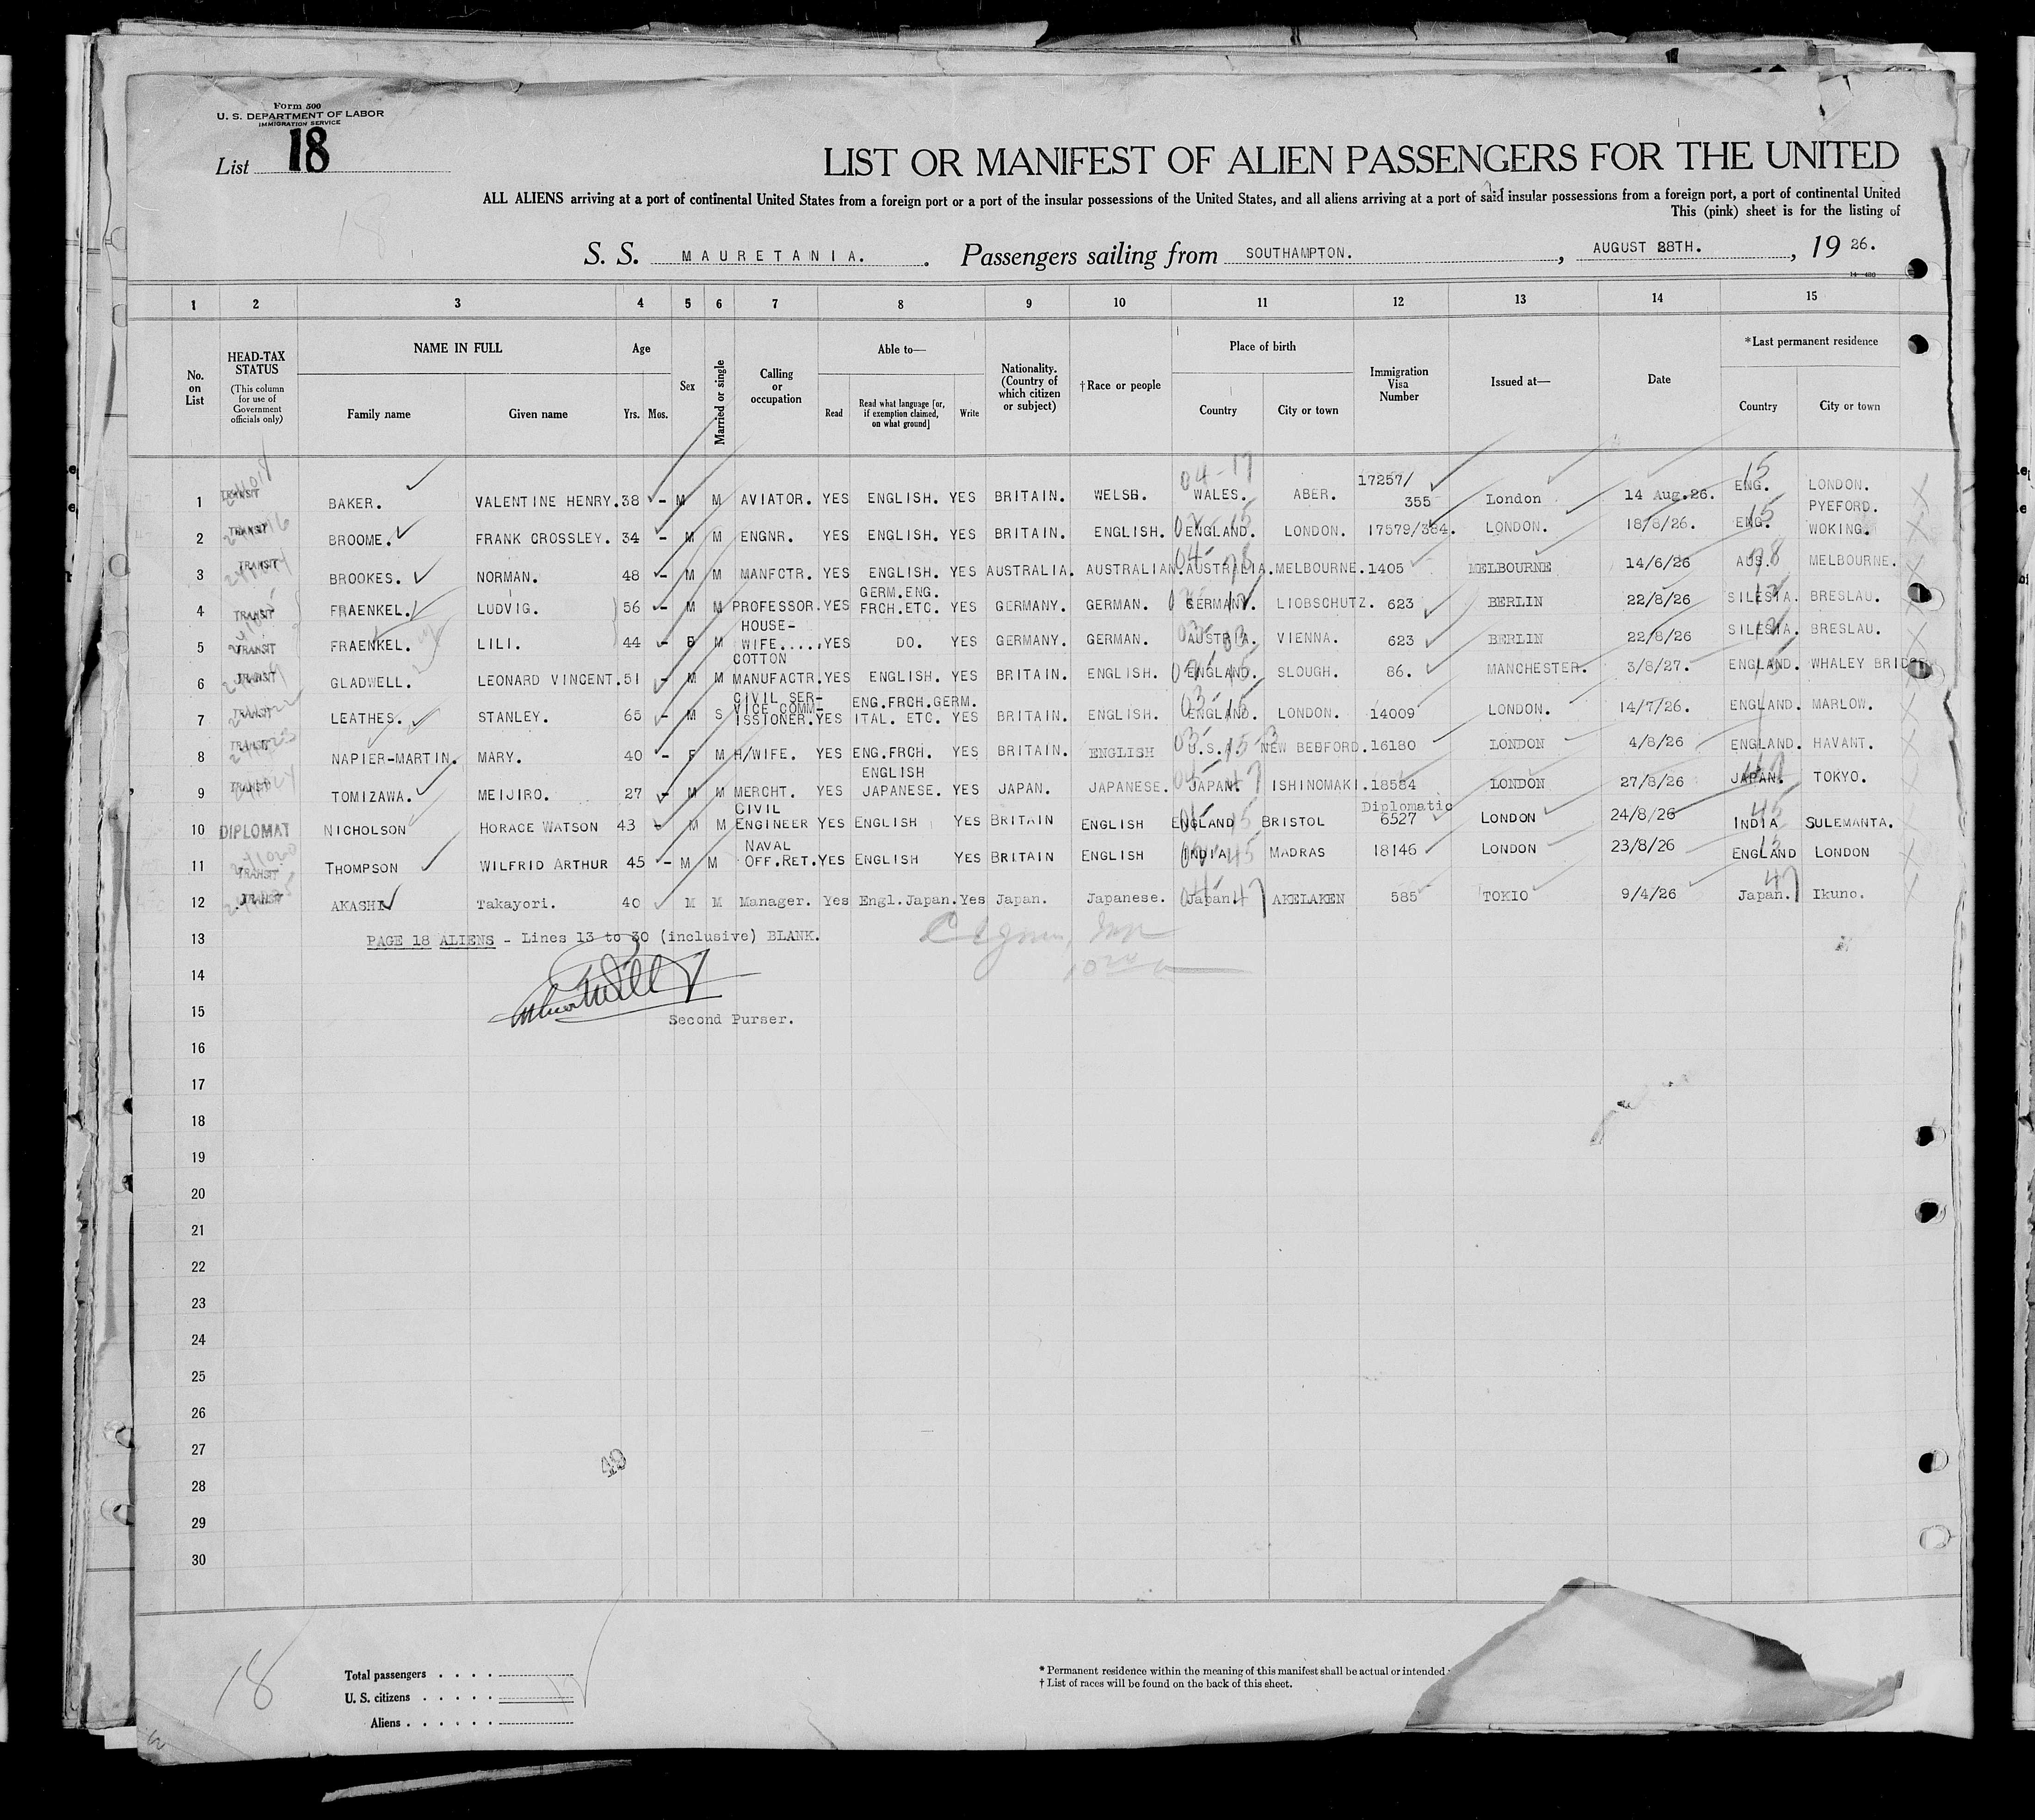 Form 500
U. S. DEPARTMENT OF LABOR
IMMIGRATION SERVICE
List 18
18
LIST OR MANIFEST OF ALIEN PASSENGERS FOR THE UNITED
ALL ALIENS arriving at a port of continental United States from a foreign port or a port of the insular possessions of the United States, and all aliens arriving at a port of said insular possessions from a foreign port, a port of continental United
This (pink) sheet is for the listing of
S. S. MAURETANIA. Passengers sailing from SOUTHAMPTON. , AUGUST 28TH. , 19 26.
1 2 3 4 5 6 7 8 9 10 11 12 13 14 15
No. on List
HEAD-TAX STATUS (This column for use of Government officials only)
NAME IN FULL Family name Given name
Age Yrs. Mos.
Sex
Married or single
Calling or occupation
Able to— Read Read what language [or, if exemption claimed, on what ground] Write
Nationality. (Country of which citizen or subject)
†Race or people
Place of birth Country City or town
Immigration Visa Number
Issued at—
Date
*Last permanent residence Country City or town
1 TRANSIT BAKER. VALENTINE HENRY. 38 - M M AVIATOR. YES ENGLISH. YES BRITAIN. WELSH. WALES. ABER. 17257/355 London 14 Aug.26. ENG. LONDON.
2 TRANSIT BROOME. FRANK CROSSLEY. 34 - M M ENGNR. YES ENGLISH. YES BRITAIN. ENGLISH. ENGLAND. LONDON. 17579/384. LONDON. 18/8/26. ENG. PYEFORD. WOKING.
3 TRANSIT BROOKES. NORMAN. 48 - M M MANFCTR. YES ENGLISH. YES AUSTRALIA. AUSTRALIAN. AUSTRALIA. MELBOURNE. 1405 MELBOURNE 14/6/26 AUS. MELBOURNE.
4 TRANSIT FRAENKEL. LUDVIG. 56 - M M PROFESSOR. YES GERM.ENG. FRCH.ETC. YES GERMANY. GERMAN. GERMANY. LIOBSCHUTZ. 623 BERLIN 22/8/26 SILESIA. BRESLAU.
5 TRANSIT FRAENKEL. LILI. 44 - F M HOUSE-WIFE..... YES DO. YES GERMANY. GERMAN. AUSTRIA. VIENNA. 623 BERLIN 22/8/26 SILESIA. BRESLAU.
6 TRANSIT GLADWELL. LEONARD VINCENT. 51 - M M COTTON MANUFACTR. YES ENGLISH. YES BRITAIN. ENGLISH. ENGLAND. SLOUGH. 86. MANCHESTER. 3/8/27. ENGLAND. WHALEY BRIDGE
7 TRANSIT LEATHES. STANLEY. 65 - M S CIVIL SER-VICE COMM-ISSIONER. YES ENG.FRCH.GERM. ITAL. ETC. YES BRITAIN. ENGLISH. ENGLAND. LONDON. 14009 LONDON. 14/7/26. ENGLAND. MARLOW.
8 TRANSIT NAPIER-MARTIN. MARY. 40 - F M H/WIFE. YES ENG.FRCH. YES BRITAIN. ENGLISH U.S.A. NEW BEDFORD. 16180 LONDON 4/8/26 ENGLAND. HAVANT.
9 TRANSIT TOMIZAWA. MEIJIRO. 27 - M M MERCHT. YES ENGLISH JAPANESE. YES JAPAN. JAPANESE. JAPAN. ISHINOMAKI. 18584 LONDON 27/8/26 JAPAN. TOKYO.
10 DIPLOMAT NICHOLSON HORACE WATSON 43 - M M CIVIL ENGINEER YES ENGLISH YES BRITAIN ENGLISH ENGLAND BRISTOL Diplomatic 6527 LONDON 24/8/26 INDIA SULEMANTA.
11 TRANSIT THOMPSON WILFRID ARTHUR 45 - M M NAVAL OFF.RET. YES ENGLISH YES BRITAIN ENGLISH INDIA MADRAS 18146 LONDON 23/8/26 ENGLAND LONDON
12 TRANSIT AKASHI Takayori. 40 M M Manager. Yes Engl.Japan. Yes Japan. Japanese. Japan AKELAKEN 585 TOKIO 9/4/26 Japan. Ikuno.
13 PAGE 18 ALIENS - Lines 13 to 30 (inclusive) BLANK.
14
15 Second Purser.
16
17
18
19
20
21
22
23
24
25
26
27
28
29
30
18
Total passengers
U. S. citizens
Aliens
* Permanent residence within the meaning of this manifest shall be actual or intended
† List of races will be found on the back of this sheet.